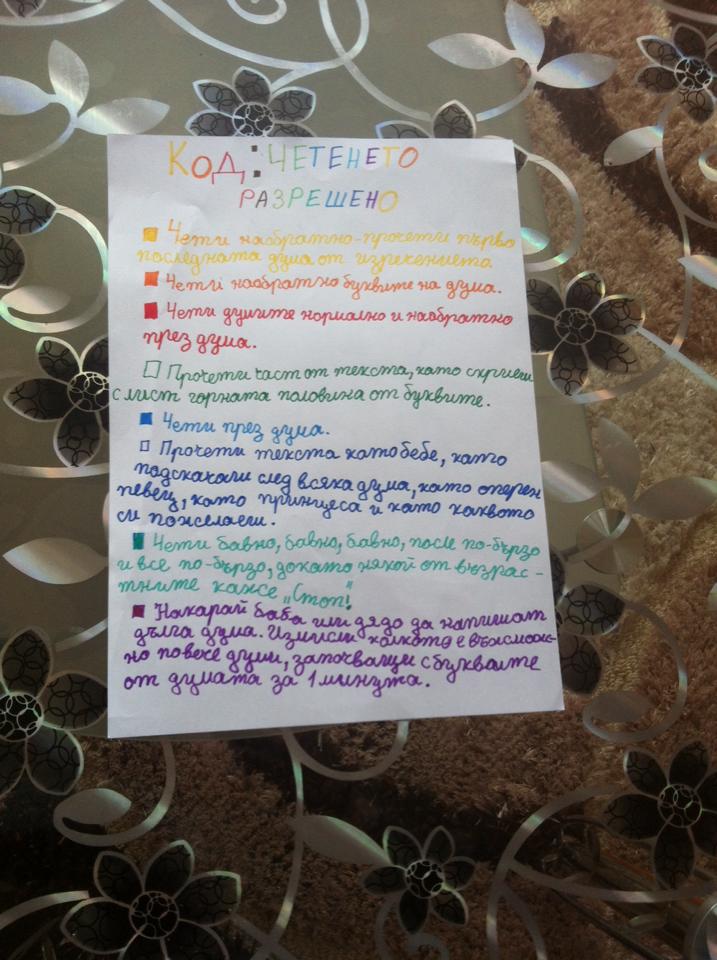 КОД:ЧЕТЕНЕТО
РАЗРЕШЕНО
Чети наобратно-прочети първо
последната дума от изречението.
Чети наобратно буквите на дума.
Чети думите нормално и наобратно
през дума.
Прочети част от текста, като скриеш
с лист горната половина от буквите.
Чети през дума.
Прочети текста като бебе, като
подскачаш след всяка дума, като оперен
певец, като принцеса и като каквото
си пожелаеш.
Чети бавно, бавно, бавно, после по-бързо
и все по-бързо, докато някой от възрас-
тните каже „Стоп!"
Накарай баба или дядо да напишат
дълга дума. Измисли колкото е възмож-
но повече думи, започващи с буквите
от думата за 1 минута.